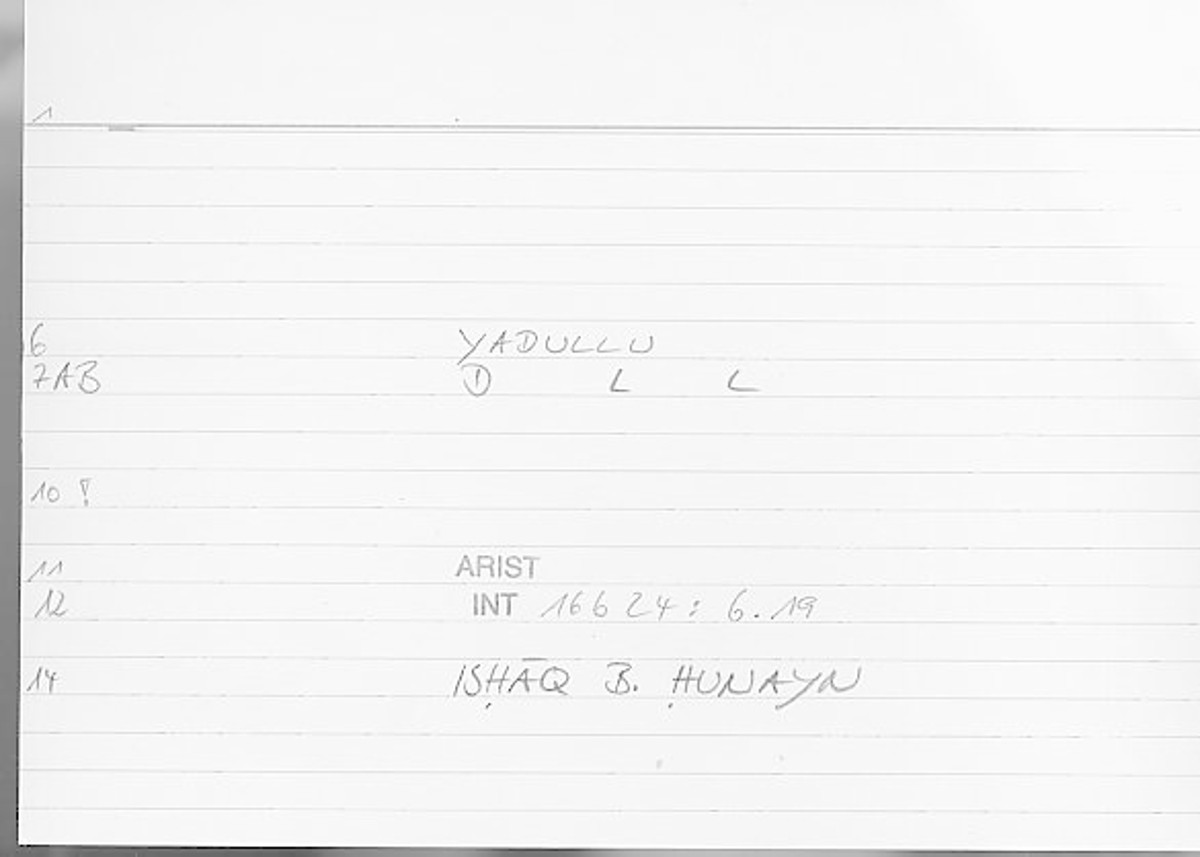 1
6 YADULLU
7AB D L L
10 !
11 ARIST
12 INT 16b24: 6.19
14 ISḤĀQ B. ḤUNAYN